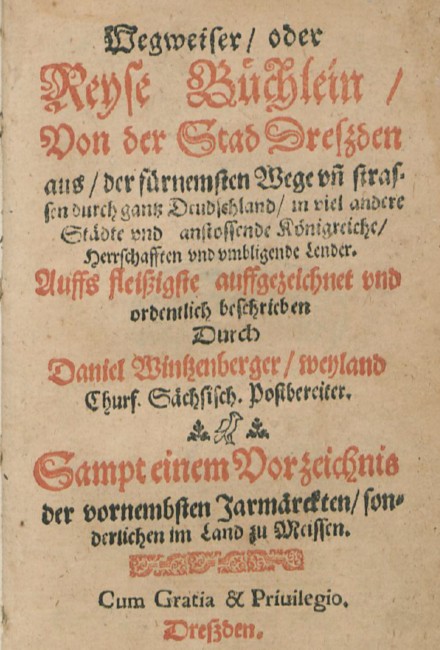 Wegweiser/ oder
Reyse Büchlein /
Von der Stad Dreſzden
aus/ der fürnemſten Wege vñ ſtraſ-
ſen durch gantz Deudſchland/ in viel andere
Städte vnd anſtoſſende Königreiche/
Herrſchafften vnd vmbligende Lender.
Auffs fleißigſte auffgezeichnet vnd
ordentlich beſchrieben
Durch
Daniel Wintzenberger/ weyland
Churf. Sächſiſch. Poſtbereiter.
Sampt einem Vorzeichnis
der vornembſten Jarmärckten/ ſon-
derlichen im Land zu Meiſſen.
Cum Gratia & Priuilegio.
Dreſzden.